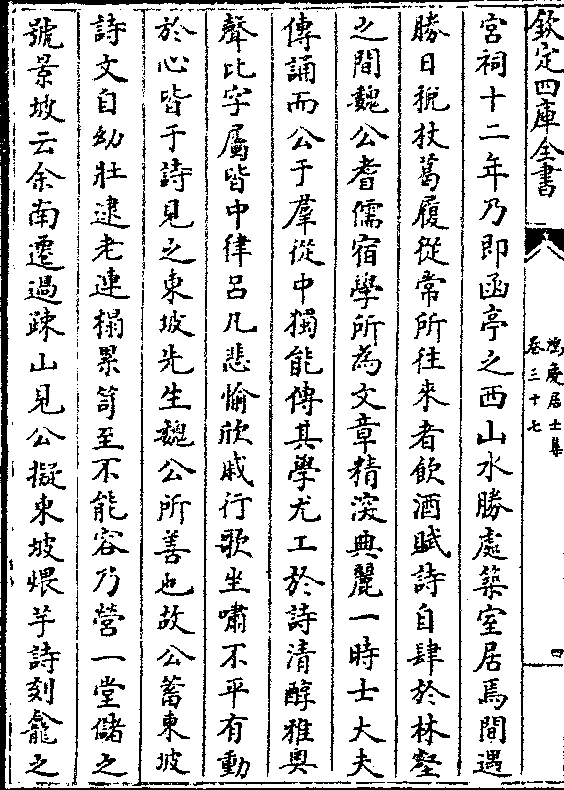 欽定四庫全書
鴻慶居士集
卷三十七
四
宮祠十二年乃即函亭之西山水勝處築室居焉間遇
勝日稅杖葛履從常所往來者飲酒賦詩自肆於林壑
之間魏公耆儒宿學所為文章精深典麗一時士大夫
傳誦而公于羣從中獨能傳其學尤工於詩清醇雅奥
聲比字屬皆中律呂凡悲愉欣戚行歌坐嘯不平有動
於心皆于詩見之東坡先生魏公所善也故公蓄東坡
詩文自幼壯逮老連榻累笥至不能容乃營一堂儲之
號景坡云余南遷過疎山見公擬東坡煨芋詩刻龕之